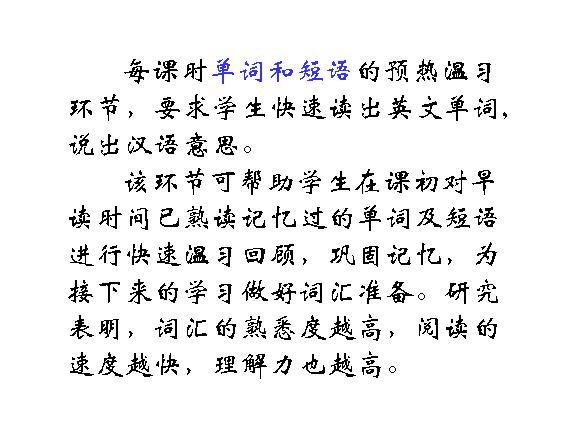 每课时单词和短语的预热温习
环节，要求学生快速读出英文单词,
说出汉语意思。
该环节可帮助学生在课初对早
读时间已熟读记忆过的单词及短语
进行快速温习回顾，巩固记忆，为
接下来的学习做好词汇准备。研究
表明，词汇的熟悉度越高，阅读的
速度越快，理解力也越高。